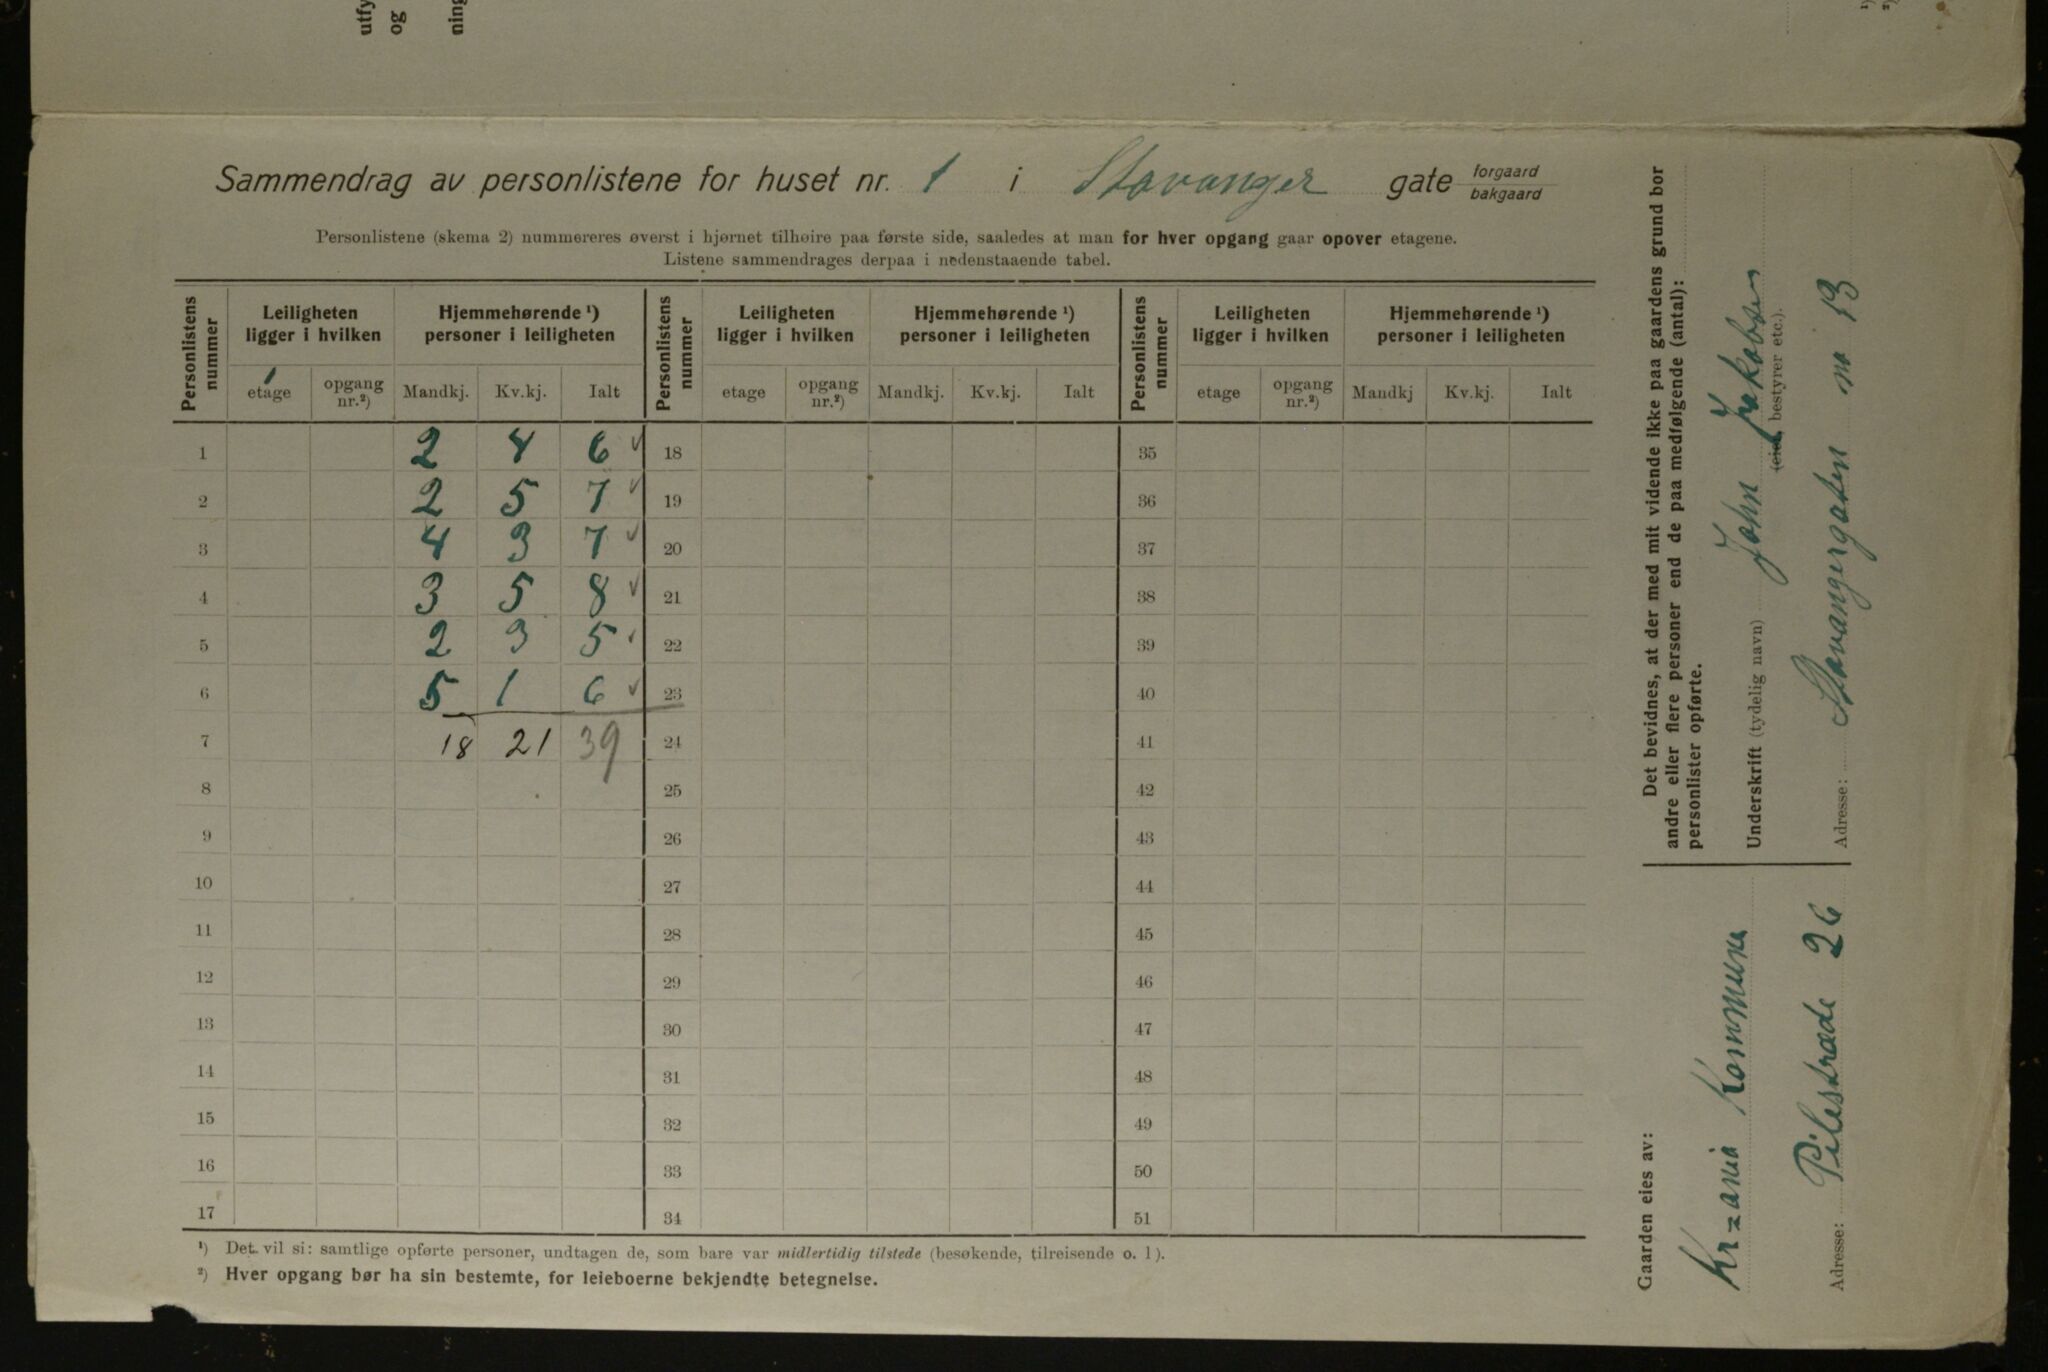 utfy
og
ning
¹)
²)
Sammendrag av personlistene for huset nr. 1 i Stavanger gate forgaard
bakgaard
Personlistene (skema 2) nummereres øverst i hjørnet tilhøire paa første side, saaledes at man for hver opgang gaar opover etagene.
Listene sammendrages derpaa i nedenstaaende tabel.
Personlistens nummer | Leiligheten ligger i hvilken | Hjemmehørende ¹) personer i leiligheten | Personlistens nummer | Leiligheten ligger i hvilken | Hjemmehørende ¹) personer i leiligheten | Personlistens nummer | Leiligheten ligger i hvilken | Hjemmehørende ¹) personer i leiligheten
1
etage | opgang nr.²) | Mandkj. | Kv.kj. | Ialt | etage | opgang nr.²) | Mandkj. | Kv.kj. | Ialt | etage | opgang nr.²) | Mandkj | Kv.kj. | Ialt
1 2 4 6 ✓ 18 35
2 2 5 7 ✓ 19 36
3 4 3 7 ✓ 20 37
4 3 5 8 ✓ 21 38
5 2 3 5 ✓ 22 39
6 5 1 6 ✓ 23 40
7 18 21 39 24 41
8 25 42
9 26 43
10 27 44
11 28 45
12 29 46
13 30 47
14 31 48
15 32 49
16 33 50
17 34 51
¹) Det vil si: samtlige opførte personer, undtagen de, som bare var midlertidig tilstede (besøkende, tilreisende o. l).
²) Hver opgang bør ha sin bestemte, for leieboerne bekjendte betegnelse.
Det bevidnes, at der med mit vidende ikke paa gaardens grund bor
andre eller flere personer end de paa medfølgende (antal):
personlister opførte.
Underskrift (tydelig navn) John Jakobsen
(eier, bestyrer etc.).
Adresse: Stavangergaten no 13
Gaarden eies av:
Kr=ania Kommune
Adresse: Pilestræde 26